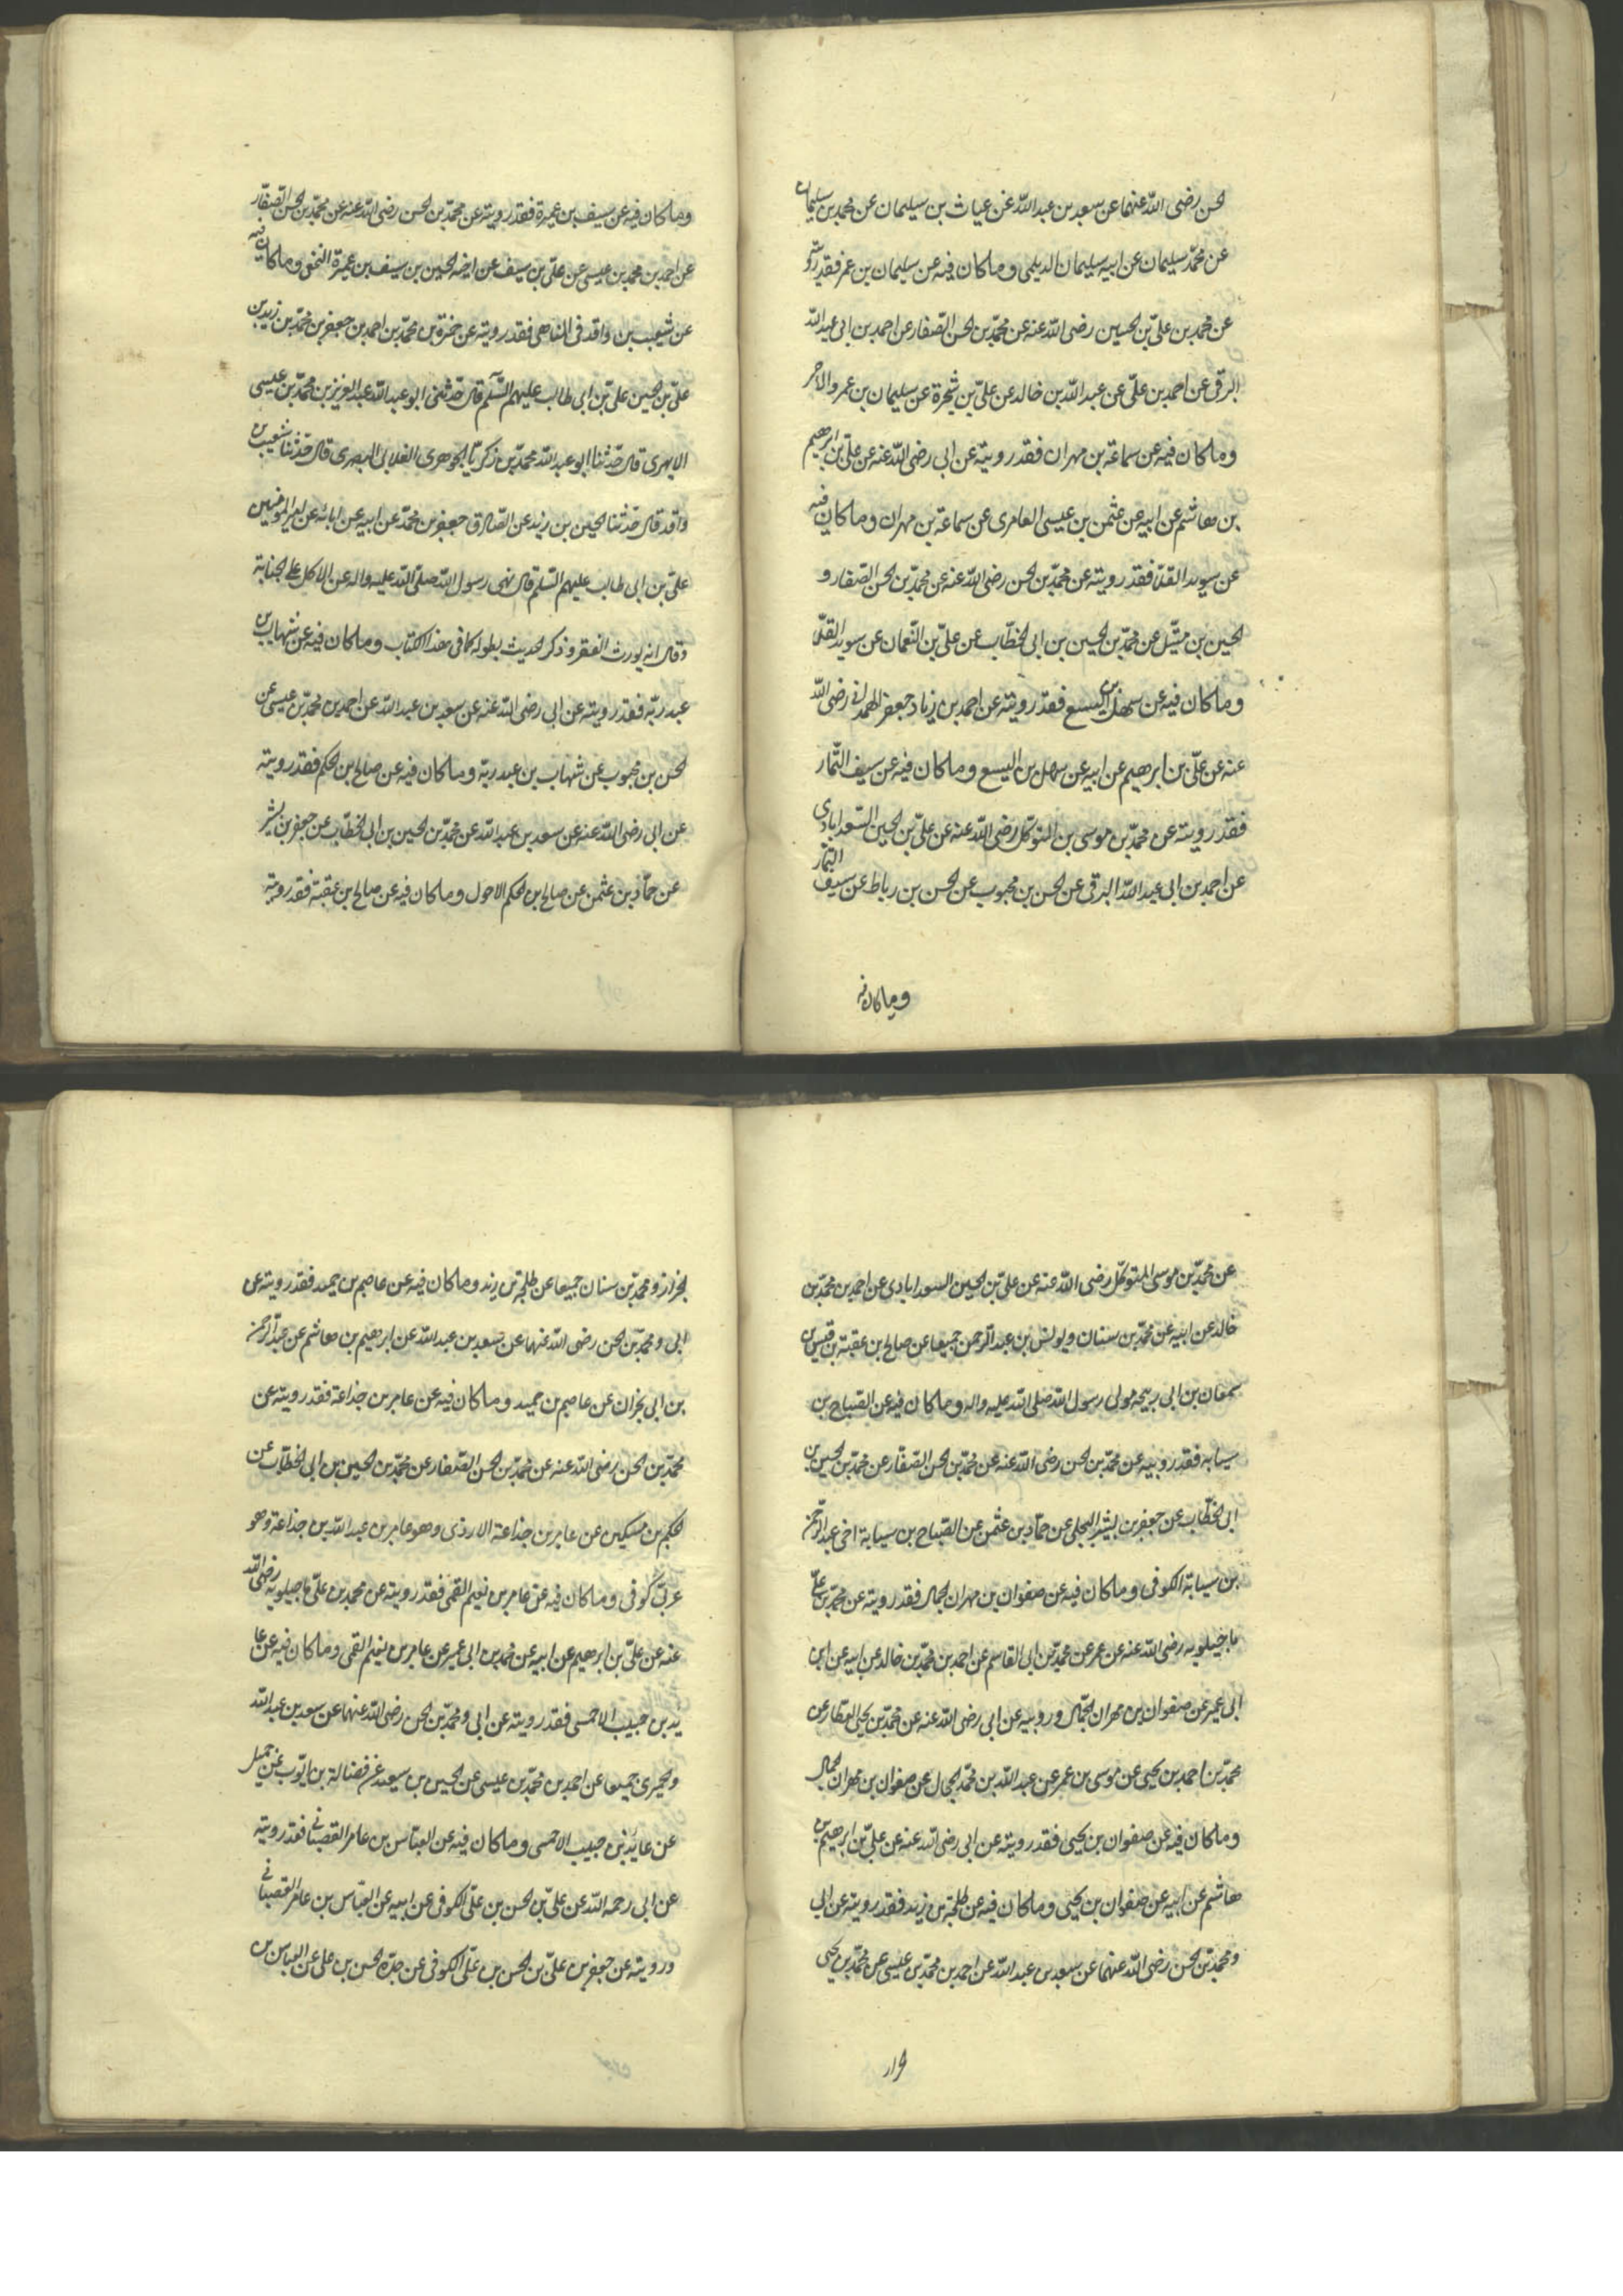 لحسن رضی الله عنهما عن سعد بن عبد الله عن عیاث بن سلیمان عن محمد بن سلیمان
عن محمد سلیمان عن ابیه سلیمان الدیلمی و ما کان فیه عن سلیمان بن عمر فقد رویته
عن محمد بن علی بن الحسین رضی الله عنه عن محمد بن لحسن الصفار عن احمد بن ابی عبد الله
البرقی عن احمد بن علی عن عبد الله بن خالد عن علی بن شجرة عن سلیمان بن عمرو الاحمر
و ما کان فیه عن سماعة بن مهران فقد رویته عن ابی رضی الله عنه عن علی بن ابرهیم
بن هاشم عن ابیه عن عثمن بن عیسی العامری عن سماعة بن مهران و ما کان فیه
عن سوید القلا فقد رویته عن محمد بن لحسن رضی الله عنه عن محمد بن لحسن الصفار و
لحسین بن متیل عن محمد بن لحسین بن ابی لخطاب عن علی بن النعمان عن سوید القلا
و ما کان فیه عن سهل بن الیسع فقد رویته عن احمد بن زیاد جعفر الهمدانی رضی الله
عنه عن علی بن ابرهیم عن ابیه عن سهل بن الیسع و ما کان فیه عن سیف التمار
فقد رویته عن محمد بن موسی بن المتوکل رضی الله عنه عن علی بن لحسین السعدابادی
عن احمد بن ابی عبد الله البرقی عن لحسن بن محبوب عن لحسن بن رباط عن سیف التمار
و ما کان فیه
و ما کان فیه عن سیف بن عمیرة فقد رویته عن محمد بن لحسن رضی الله عنه عن محمد بن لحسن الصفار
عن احمد بن محمد بن عیسی عن علی بن سیف عن اخیه لحسین بن سیف بن عمیرة النخعی و ما کان فیه
عن شعیب بن واقد فی المناهی فقد رویته عن حمزة بن محمد بن احمد بن جعفر بن محمد بن زید بن
علی بن لحسین علی بن ابی طالب علیهم السلم قال حدثنی ابو عبد الله عبد العزیز بن محمد بن عیسی
الابهری قال حدثنا ابو عبد الله محمد بن زکریا لجوهری الغلابی البصری قال حدثنا شعیب بن
واقد قال حدثنا لحسین بن زید عن الصادق جعفر بن محمد عن ابیه عن ابائه عن امیر المؤمنین
علی بن ابی طالب علیهم السلم قال نهی رسول الله صلی الله علیه و اله عن الاکل علی لجنابة
و قال انه یورث الفقر و ذکر لحدیث بطوله کما فی هذا الکتاب و ما کان فیه عن شهاب بن
عبد ربه فقد رویته عن ابی رضی الله عنه عن سعد بن عبد الله عن احمد بن محمد بن عیسی عن
لحسن بن محبوب عن شهاب بن عبد ربه و ما کان فیه عن صالح بن لحکم فقد رویته
عن ابی رضی الله عنه عن سعد بن عبد الله عن محمد بن لحسین بن ابی لخطاب عن جعفر بن بشیر
عن حماد بن عثمن عن صالح بن لحکم الاحول و ما کان فیه عن صالح بن عقبة فقد رویته
عن محمد بن موسی المتوکل رضی الله عنه عن علی بن لحسین السعدابادی عن احمد بن محمد بن
خالد عن ابیه عن محمد بن سنان و یونس بن عبد الرحمن جمیعا عن صالح بن عقبة بن قیس بن
سمعان بن ابی ربیحه مولی رسول الله صلی الله علیه و اله و ما کان فیه عن الصباح بن
سیابه فقد رویته عن محمد بن لحسن رضی الله عنه عن محمد بن لحسن الصفار عن محمد بن لحسین بن
ابی لخطاب عن جعفر بن بشیر البجلی عن حماد بن عثمن عن الصباح بن سیابة اخی عبد الرحمن
بن سیابة الکوفی و ما کان فیه عن صفوان بن مهران لجمال فقد رویته عن محمد بن علی
ماجیلویه رضی الله عنه عن عمر عن محمد بن ابی القاسم عن احمد بن محمد بن خالد عن ابیه عن ابن
ابی عمیر عن صفوان بن مهران لجمال و رویته عن ابی رضی الله عنه عن محمد بن یحیی العطار عن
محمد بن احمد بن یحیی عن موسی بن عمر عن عبد الله بن محمد لحجال عن صفوان بن مهران لجمال
و ما کان فیه عن صفوان بن یحیی فقد رویته عن ابی رضی الله عنه عن علی بن ابرهیم بن
هاشم عن ابیه عن صفوان بن یحیی و ما کان فیه عن طلحة بن زید فقد رویته عن ابی
و محمد بن لحسن رضی الله عنهما عن سعد بن عبد الله عن احمد بن محمد بن عیسی عن محمد بن یحیی
لخزاز
لخزاز و محمد بن سنان جمیعا عن طلحة بن زید و ما کان فیه عن عاصم بن حمید فقد رویته عن
ابی و محمد بن لحسن رضی الله عنهما عن سعد بن عبد الله عن ابرهیم بن هاشم عن عبد الرحمن
بن ابی نجران عن عاصم بن حمید و ما کان فیه عن عامر بن جذاعة فقد رویته عن
محمد بن لحسن رضی الله عنه عن محمد بن لحسن الصفار عن محمد بن لحسین بن ابی لخطاب عن
لحکم بن مسکین عن عامر بن جذاعة الازدی و هو عامر بن عبد الله بن جذاعة و هو
عربی کوفی و ما کان فیه عن عامر بن نعیم القمی فقد رویته عن محمد بن علی ماجیلویه رضی الله
عنه عن علی بن ابرهیم عن ابیه عن محمد بن ابی عمیر عن عامر بن نعیم القمی و ما کان فیه عن عا
یذ بن حبیب الاحمسی فقد رویته عن ابی و محمد بن لحسن رضی الله عنهما عن سعد بن عبد الله
و لحمیری جمیعا عن احمد بن محمد بن عیسی عن لحسین بن سعید عن فضالة بن ایوب عن جمیل
عن عایذ بن حبیب الاحمسی و ما کان فیه عن العباس بن عامر القصبانی فقد رویته
عن ابی رحمه الله عن علی بن لحسن بن علی الکوفی عن ابیه عن العباس بن عامر القصبانی
و رویته عن جعفر بن علی بن لحسن بن علی الکوفی عن جده لحسن بن علی عن العباس بن